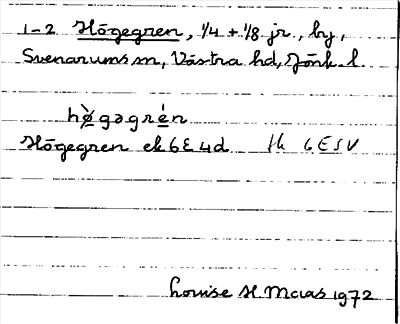 1-2 Högegren, 1/4 + 1/8 jr., by,
Svenarums sn, Västra hd, Jönk. l.
hø̀gəgrén
Högegren ek 6E 4d fk 6E SV
Louise H. Maas 1972